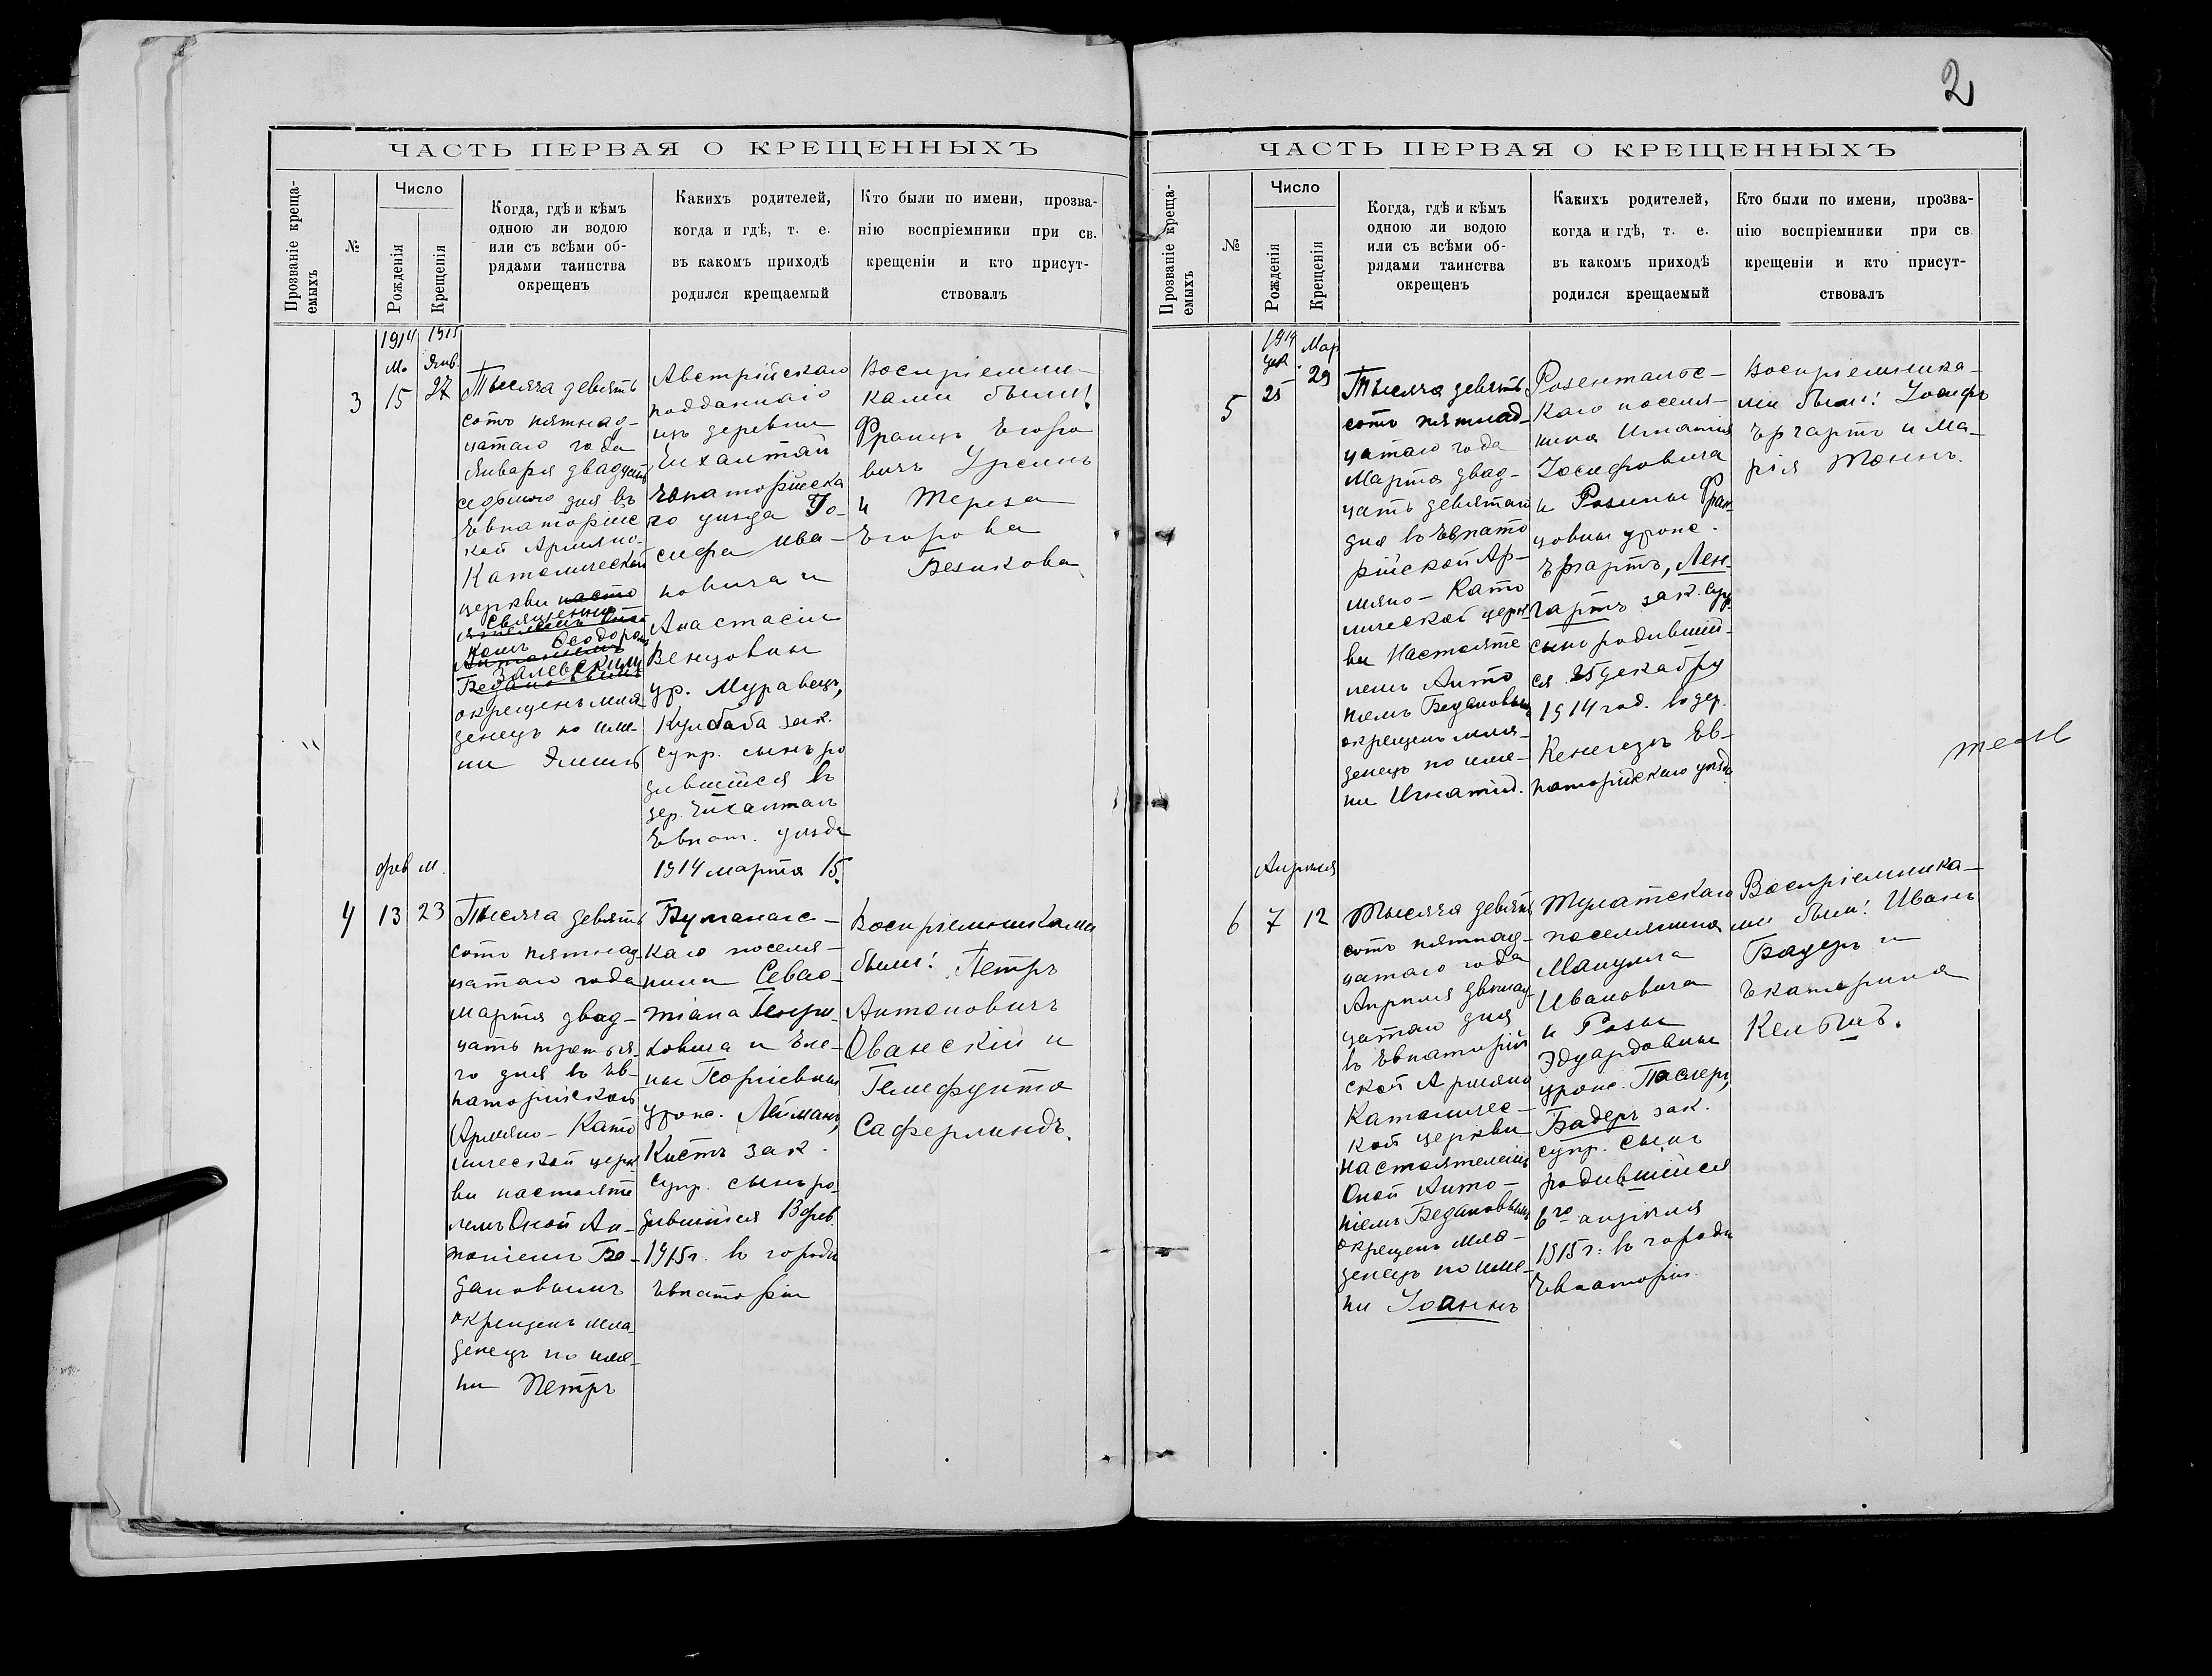 2
ЧАСТЬ ПЕРВАЯ О КРЕЩЕННЫХЪ
Прозваніе креща-
емыхъ
№
Число
Рожденія
Крещенія
Когда, гдѣ и кѣмъ
одною ли водою
или съ всѣми об-
рядами таинства
окрещенъ
Какихъ родителей,
когда и гдѣ, т. е.
въ какомъ приходѣ
родился крещаемый
Кто были по имени, прозва-
нію воспріемники при св.
крещеніи и кто присут-
ствовалъ
3
1914
М.
15
1915
Янв.
27
Тысяча девять
сотъ пятнад-
цатаго года
Января двадцать
седьмого дня въ
Евпаторійс
кой Армяно-
Католической
церкви насто
Священни
ятелемъ
комъ Ѳеодоромъ
Антоніемъ
Залевскимъ
Бедановымъ
окрещенъ мла
денецъ по име-
ни Эмиль
Австрійскаго
подданнаго
изъ деревни
Евпаторійска
го уѣзда Іо-
сифа Ива-
новича и
Анастасіи
Венцовны
ур. Муравецъ,
Кулбаба зак.
супр. сынъ ро
дившійся въ
дер.
Евпат. уѣзда
1914 марта 15.
Воспріемни-
ками были:
Францъ Егоро
вичъ Урсинъ
и Тереза
Егорова
Безикова
4
фев м.
13
23
Тысяча девять
сотъ пятнад-
цатаго года
марта двад-
цать третья-
го дня въ Ев-
паторійской
Армяно-Като
лической церк
ви настояте
лемъ Оной Ан-
тоніемъ Бе-
дановымъ
окрещенъ мла
денецъ по име-
ни Петръ
каго поселя-
нина Севас-
тіана Генри-
ховича и Еле-
ны Георгіевны
урожс. Лейманъ,
Кистъ зак.
супр. сынъ ро-
дившійся 13 фев.
1915г. въ городѣ
Евпаторіи
Воспріемниками
были: Петръ
Антоновичъ
Ованескій и
Саферлиндъ.
ЧАСТЬ ПЕРВАЯ О КРЕЩЕННЫХЪ
Прозваніе креща-
емыхъ
№
Число
Рожденія
Крещенія
Когда, гдѣ и кѣмъ
одною ли водою
или съ всѣми об-
рядами таинства
окрещенъ
Какихъ родителей,
когда и гдѣ, т. е.
въ какомъ приходѣ
родился крещаемый
Кто были по имени, прозва-
нію воспріемники при св.
крещеніи и кто присут-
ствовалъ
5
1914
дек
25
Мар
29
Тысяча девять
сотъ пятнад-
цатаго года
Марта двад-
цать девятаго
дня въ Евпато
рійской Ар-
мяно-Като
лической церк
ви Настояте
лемъ Анто
ніемъ Бедановымъ
окрещенъ мла-
денецъ по име-
ни Игнатій.
Розентальс-
каго поселя-
нина Игнатія
Іосифовича
и Розины Фран
цовны урожс.
Эргартъ, Лен-
гартъ зак. супр.
сынъ родивший-
ся 25 декабря
1914 год. въ дер.
Кенегезъ Ев-
паторійскаго уѣзда
Воспріемника-
ми были: Іосифъ
Эргартъ и Ма-
рія Тоннъ.
6
Апрѣля
7
12
Тысяча девять
сотъ пятнад-
цатаго года
Апрѣля двѣнад-
цатаго дня
въ Евпаторій
ской Армяно
Католичес-
кой церкви
настоятелемъ
Оной Анто-
ніемъ Бедановымъ
окрещенъ мла-
денецъ по име-
ни Іоаннъ
поселянина
Ивановича
и Розы
Эдуардовны
урожс.
Бадеръ зак.
супр. сынъ
родившійся
6го апрѣля
1915г. въ городѣ
Евпаторіи.
Воспріемника-
ми были: Иванъ
Бадеръ и
Екатерина